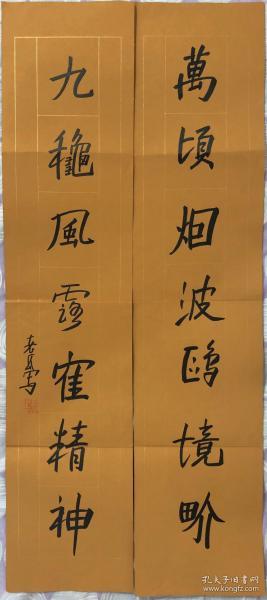 萬頃烟波鷗境界
九穐風露隺精神
孔夫子旧书网